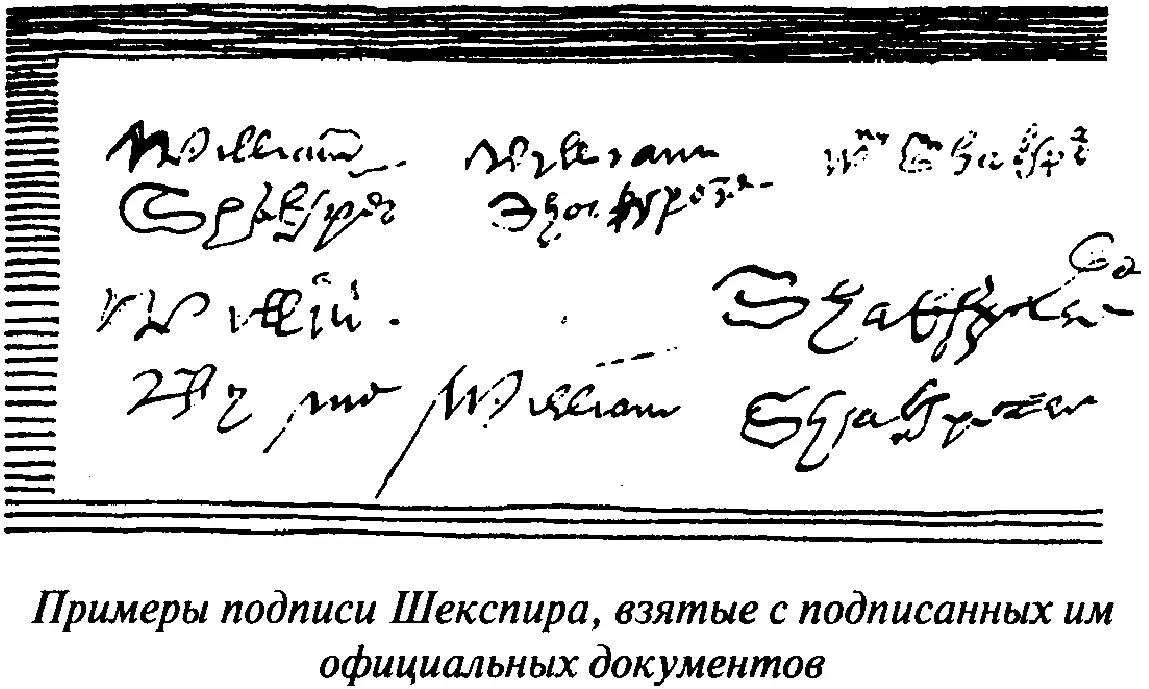 William William Wm Shakspe
Shakspere Shakspe
Willm Shakspere
By me William Shakspeare
Примеры подписи Шекспира, взятые с подписанных им
официальных документов